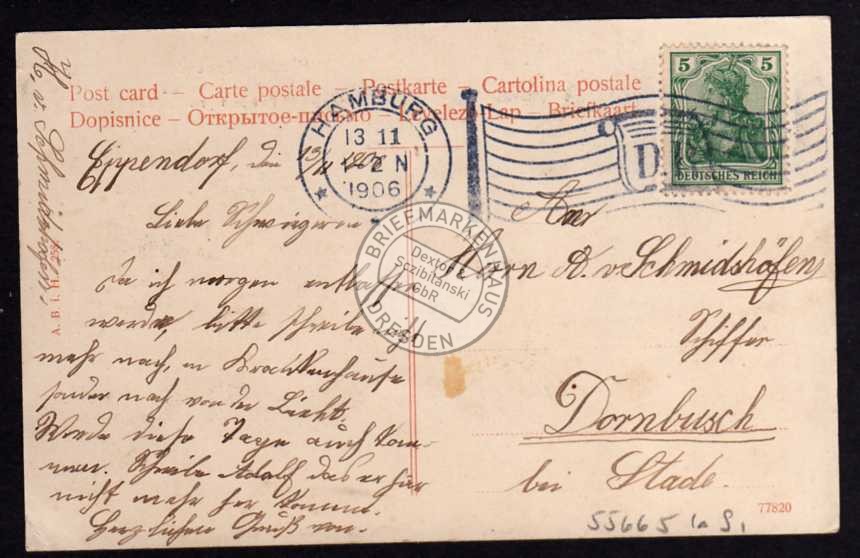 Post card – Carte postale – Postkarte – Cartolina postale
Dopisnice – Открытое-письмо – Levelező-Lap – Briefkaart
HAMBURG
13 11
1-2 N
1906
D
5 5
DEUTSCHES REICH
Eppendorf, den 13/11 1906
Liebe Schwiegerin
Da ich morgen entlassen
werde, bitte schreibe nicht
mehr nach, in Krankenhause
sonder nach von der
Werde diese Tage auch kom-
men. Schreibe Adolf das er hier
nicht mehr her komme.
Herzlichen Gruß von
H. v Schmidshöfen.
A. B. i. H. 25
An
Herrn A. v Schmidshöfen
Schiffer
Dornbusch
bei Stade.
77820
55665 la S,
BRIEFMARKENHAUS
Dextor
Sczibilanski
GbR
DRESDEN